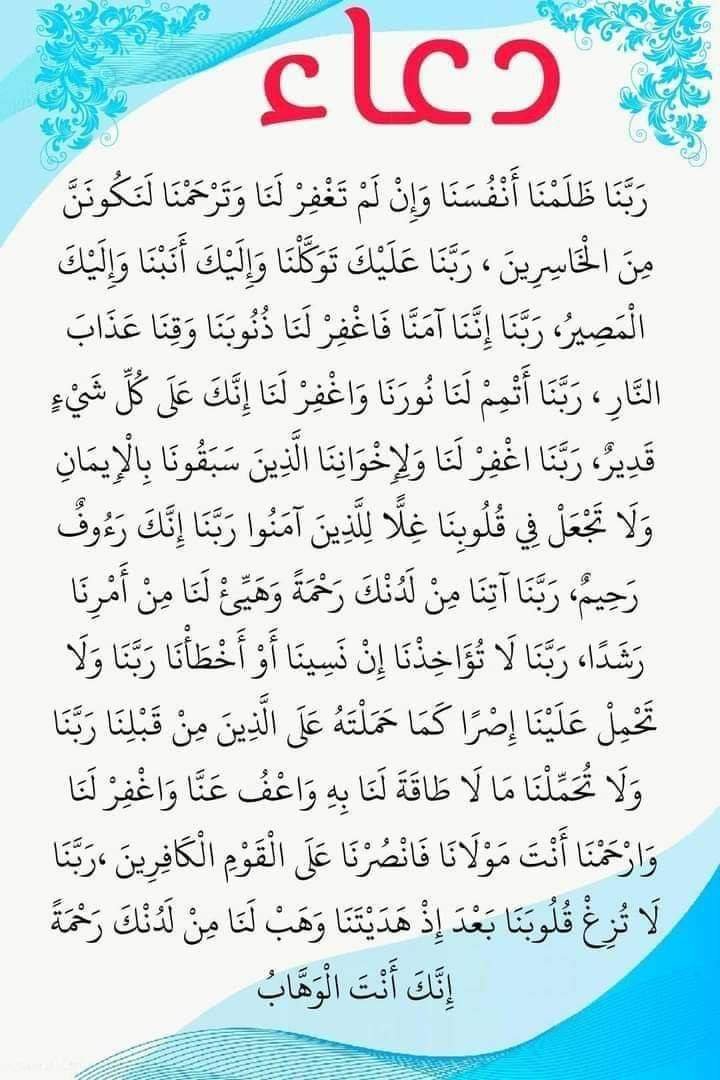 دعاء
رَبَّنَا ظَلَمْنَا أَنْفُسَنَا وَإِنْ لَمْ تَغْفِرْ لَنَا وَتَرْحَمْنَا لَنَكُونَنَّ
مِنَ الْخَاسِرِينَ ، رَبَّنَا عَلَيْكَ تَوَكَّلْنَا وَإِلَيْكَ أَنَبْنَا وَإِلَيْكَ
الْمَصِيرُ، رَبَّنَا إِنَّنَا آمَنَّا فَاغْفِرْ لَنَا ذُنُوبَنَا وَقِنَا عَذَابَ
النَّارِ ، رَبَّنَا أَتْمِمْ لَنَا نُورَنَا وَاغْفِرْ لَنَا إِنَّكَ عَلَى كُلِّ شَيْءٍ
قَدِيرٌ، رَبَّنَا اغْفِرْ لَنَا وَلِإِخْوَانِنَا الَّذِينَ سَبَقُونَا بِالْإِيمَانِ
وَلَا تَجْعَلْ فِي قُلُوبِنَا غِلًّا لِلَّذِينَ آمَنُوا رَبَّنَا إِنَّكَ رَءُوفٌ
رَحِيمٌ، رَبَّنَا آتِنَا مِنْ لَدُنْكَ رَحْمَةً وَهَيِّئْ لَنَا مِنْ أَمْرِنَا
رَشَدًا، رَبَّنَا لَا تُؤَاخِذْنَا إِنْ نَسِينَا أَوْ أَخْطَأْنَا رَبَّنَا وَلَا
تَحْمِلْ عَلَيْنَا إِصْرًا كَمَا حَمَلْتَهُ عَلَى الَّذِينَ مِنْ قَبْلِنَا رَبَّنَا
وَلَا تُحَمِّلْنَا مَا لَا طَاقَةَ لَنَا بِهِ وَاعْفُ عَنَّا وَاغْفِرْ لَنَا
وَارْحَمْنَا أَنْتَ مَوْلَانَا فَانْصُرْنَا عَلَى الْقَوْمِ الْكَافِرِينَ ،رَبَّنَا
لَا تُزِغْ قُلُوبَنَا بَعْدَ إِذْ هَدَيْتَنَا وَهَبْ لَنَا مِنْ لَدُنْكَ رَحْمَةً
إِنَّكَ أَنْتَ الْوَهَّابُ